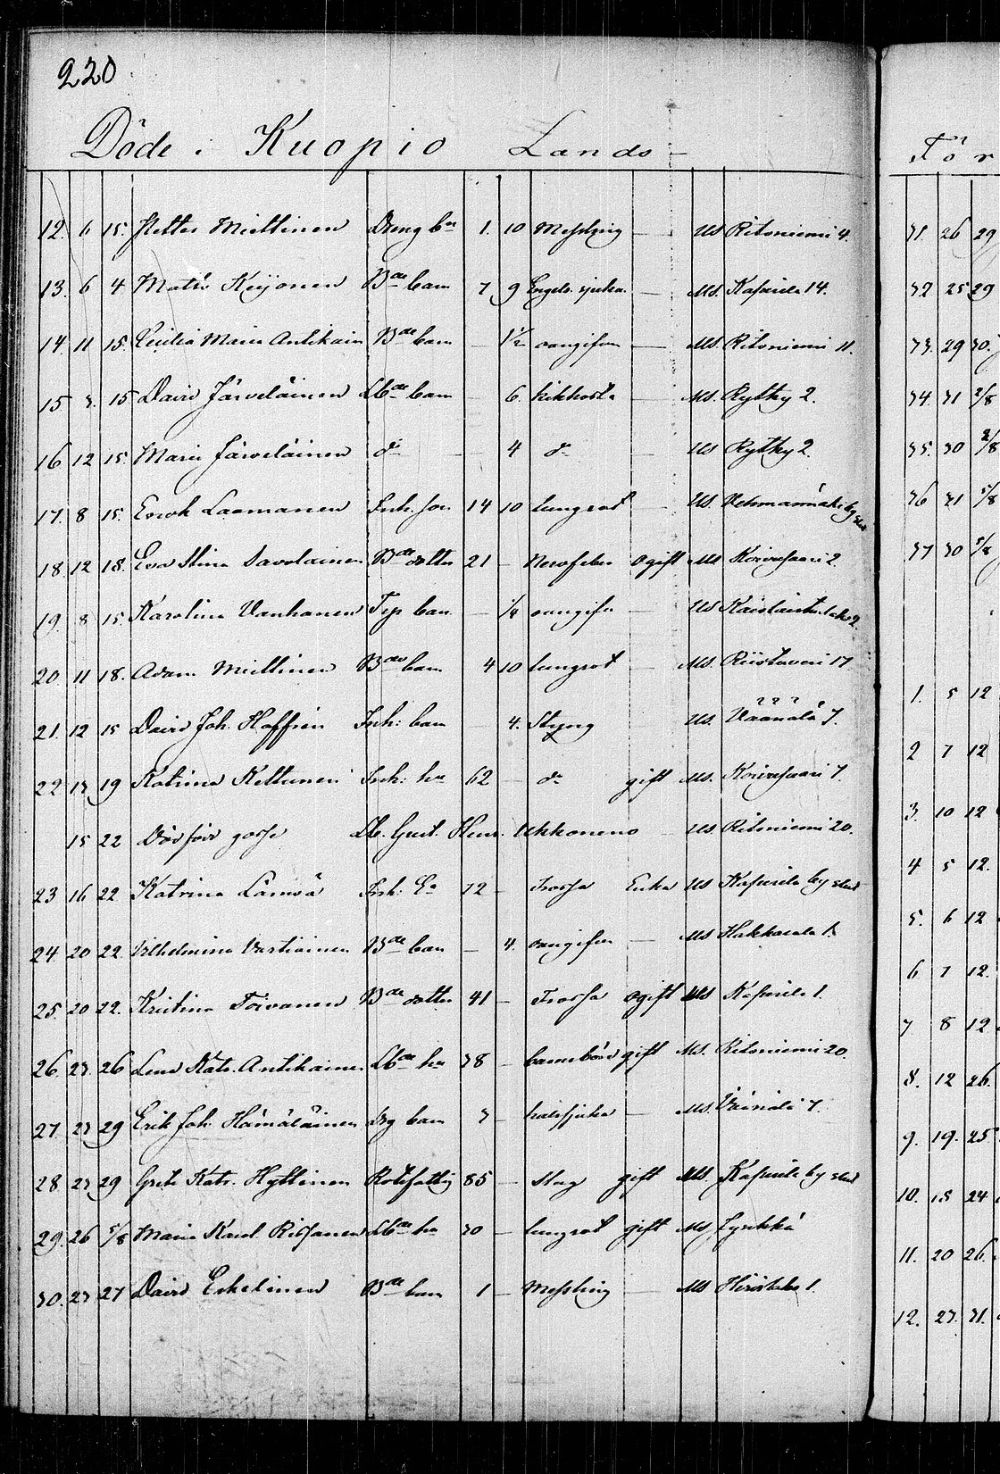 220
Döde i Kuopio Lands
12. 6 15. Petter Miettinen Dreng bn 1. 10 Messling — Us Ritoniemi 4.
13. 6 4 Matts Keijonen Bde barn 7 9 Engels. sjuka — Ms. Kasurila 14.
14 11 15. Cecilia Maria Antikain Bde barn 1/2 oangifven — Ms. Ritoniemi 11.
15 15 David Järveläinen Lbde barn 6. kikhosta — Ms. Rytky 2.
16 12 15. Maria Järveläinen do — 4 do — Us Rytky 2.
17. 8 15. Enok Laamanen Inh. son 14 10 lungsot Us. Vehmasmäki by
18. 12 18. Eva Stina Savolainen Bde dotter 21 — Nervfeber ogift Ms Koivusaari 2.
19. 8 15. Karolina Vanhanen Torp barn — 1/4 oangifn — Us
20. 11 18. Adam Miettinen Bde barn 4 10 lungsot — Ms. Riistaveri 17
21. 12 15 David Joh. Hoffrén Inh: barn — 4. Styng Us. Väänälä 7.
22 13 19 Katrina Kettunen Inh: hu 62 — do gift Ms. Koivusaari 7.
15 22 Dödfödd gosse Lb. Gust. Henr. Ukkonens — Us Ritoniemi 20.
23 16 22 Katrina Lämsä Inh: Ea 72 — Frossa Enka Us Kasurila by
24. 20 22. Vilhelmina Vartiainen Bde barn — 4. oangifven — Ms Hakkarala 1.
25. 20 22. Kristina Toivanen Bde dotter 41 — Frossa ogift Ms Kasurila 1.
26. 23. 26 Lena Katr. Antikainen Lbde hu 38 — barnsbörd gift Ms. Ritoniemi 20.
27. 23 29 Erik Joh. Hämäläinen Drg barn 3 — halssjuka — Ms. Väänälä 7.
28. 23 29 Greta Katr. Hyttinen Rotefattig 85 — slag gift Ms. Kasurila by
29. 26 5/8 Maria Karol. Rissanen Lbde hu 30 — lungsot gift Ms. Jynkkä
30. 23 27 David Eskelinen Bde barn 1 — Messling — Ms Hirvilahti 1.
För
31. 26 29
32 25 29
33. 29 30.
34. 31 2/8
35. 30 2/8
36 31 5/8
37 30
1. 5 12
2 7 12
3. 10 12
4 5 12.
5. 6 12
6 7 12.
7 8 12
8. 12 26.
9. 19. 25
10. 15 24
11. 20 26.
12. 23. 31.